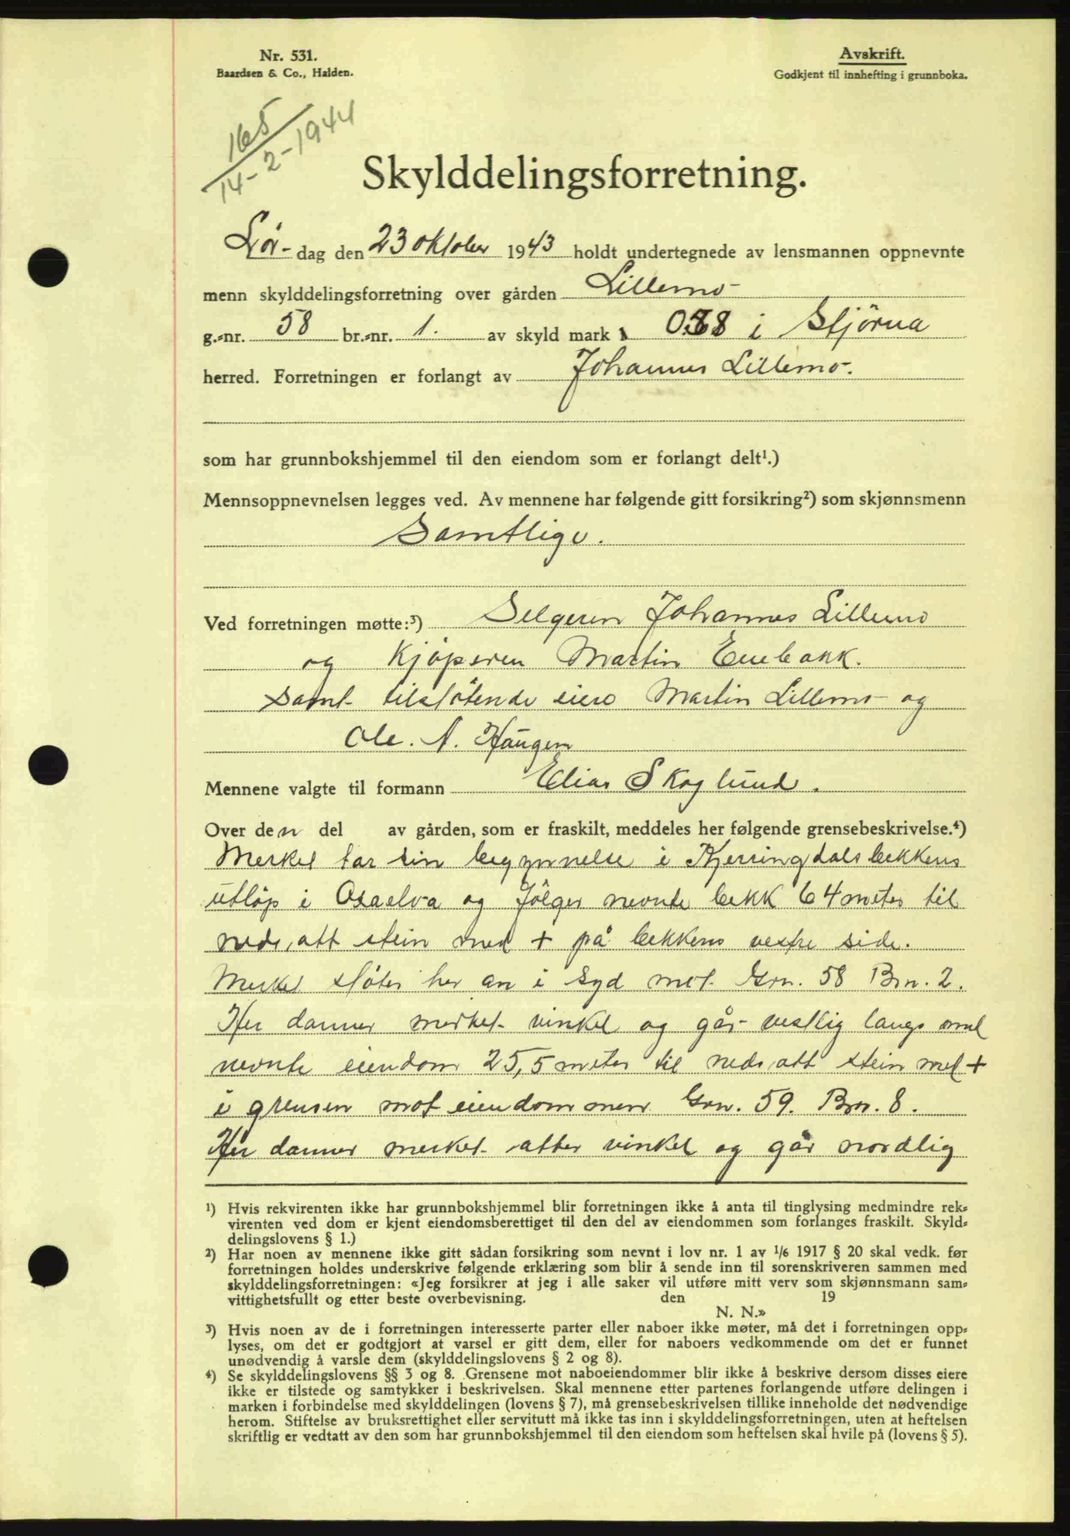 Nr. 531.
Baardsen & Co., Halden.
Avskrift.
Godkjent til innhefting i grunnboka.
165
14-2-1944
Skylddelingsforretning.
Lør- dag den 23 oktober 1943 holdt undertegnede av lensmannen oppnevnte
menn skylddelingsforretning over gården Lillemo-
g.-nr. 58 br.-nr. 1. av skyld mark i Stjörna
herred. Forretningen er forlangt av Johannes Lillemo.
som har grunnbokshjemmel til den eiendom som er forlangt delt¹.)
Mennsoppnevnelsen legges ved. Av mennene har følgende gitt forsikring²) som skjønnsmenn
Samtlige.
Ved forretningen møtte:³) Selgeren Johannes Lillemo
og Kjöperen Martin Enebakk.
samt tilstötende eiere Martin Lillemo og
Ole. A. Haugen
Mennene valgte til formann Elias Skoglund.
Over den del av gården, som er fraskilt, meddeles her følgende grensebeskrivelse.⁴)
Merket tar sin begynnelse i Kjerringdalsbekkens
utlöp i Oxaelva og fölger nevnte bekk 64 meter til
neds. att stein med + på bekkens vestre side.
Merket stöter her an i Syd mot Grn. 58 Brn. 2.
Her danner merket vinkel og går vestlig langs
nevnte eiendom 25,5 meter til neds. att stein med +
i grensen mot eiendommen Grn. 59. Brn. 8.
Her danner merket atter vinkel og går nordlig
¹) Hvis rekvirenten ikke har grunnbokshjemmel blir forretningen ikke å anta til tinglysing medmindre rek-
virenten ved dom er kjent eiendomsberettiget til den del av eiendommen som forlanges fraskilt. Skyld-
delingslovens § 1.)
²) Har noen av mennene ikke gitt sådan forsikring som nevnt i lov nr. 1 av 1/6 1917 § 20 skal vedk. før
forretningen holdes underskrive følgende erklæring som blir å sende inn til sorenskriveren sammen med
skylddelingsforretningen: «Jeg forsikrer at jeg i alle saker vil utføre mitt verv som skjønnsmann sam-
vittighetsfullt og etter beste overbevisning. den 19
N. N.»
³) Hvis noen av de i forretningen interesserte parter eller naboer ikke møter, må det i forretningen opp-
lyses, om det er godtgjort at varsel er gitt dem, eller for naboers vedkommende om det er funnet
unødvendig å varsle dem (skylddelingslovens § 2 og 8).
⁴) Se skylddelingslovens §§ 3 og 8. Grensene mot naboeiendommer blir ikke å beskrive dersom disses eiere
ikke er tilstede og samtykker i beskrivelsen. Skal mennene etter partenes forlangende utføre delingen i
marken i forbindelse med skylddelingen (lovens § 7), må grensebeskrivelsen tillike inneholde det nødvendige
herom. Stiftelse av bruksrettighet eller servitutt må ikke tas inn i skylddelingsforretningen, uten at heftelsen
skriftlig er vedtatt av den som har grunnbokshjemmel til den eiendom som heftelsen skal hvile på (lovens § 5).